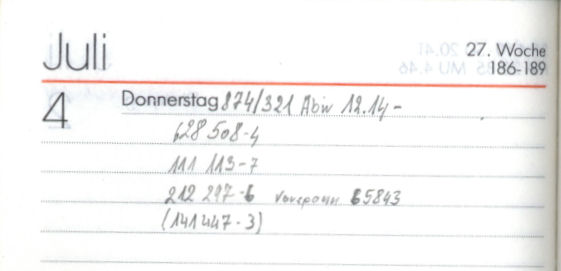 Juli
27. Woche
186-189
4 Donnerstag 874/321 Abw 12.14-
628 508-4
111 113-7
212 297-6 Vorspann 65843
(141 447-3)